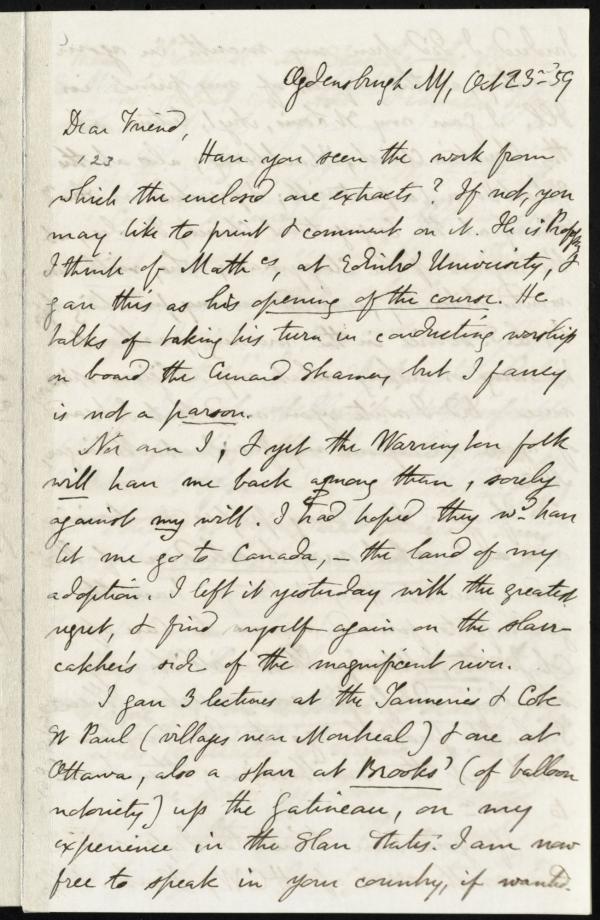 Ogdensburgh NY, Oct 23rd 59
Dear Friend,
123 Have you seen the work from
which the enclosed are extracts? If not, you
may like to print & comment on it. He is Profr,
I think of Mathcs, at Edinbro University, &
gave this as his opening of the course. He
talks of taking his turn in conducting worship
on board the Cunard Steamer, but I fancy
is not a parson.
Nor am I; & yet the Warrington folk
will have me back among them, sorely
against my will. I had hoped they wd. have
let me go to Canada, – the land of my
adoption. I left it yesterday with the greatest
regret, & find myself again on the slave-
catcher's side of the magnificent river.
I gave 3 lectures at the Tanneries & Cote
St Paul (villages near Montreal) & one at
Ottawa, also a slave at Brooks' (of balloon
notoriety) up the Gatineau, on my
experience in the Slave States. I am now
free to speak in your country, if wanted.